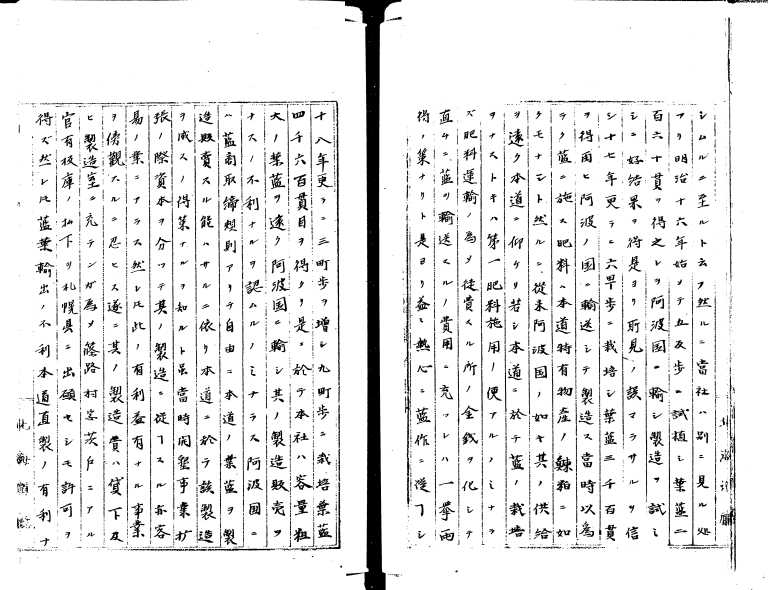 シムルニ至ルト云フ然ルニ當社ハ別ニ見ル処
アリ明治十六年始メテ五反歩ニ試植シ葉藍二
百六十貫ヲ得之レヲ阿波國ニ輸シ製造ヲ試ミ
シニ好結果ヲ得是ヨリ所見ノ誤マラサルヲ信
シ十七年更ラニ六町歩ニ栽培シ葉藍三千百貫
ヲ得再ヒ阿波ノ國ニ輸送シテ製造ス當時以為
ラク藍ニ施ス肥料ハ本道特有物産ノ鰊粕ニ如
クモナシト然ルニ従来阿波国ノ如キ其ノ供給
ヲ遠ク本道ニ仰ケリ若シ本道ニ於テ藍ノ栽培
ヲナストキハ第一肥料施用ノ便アルノミナラ
ス肥料運輸ノ為メ徒費スル所ノ金錢ヲ化シテ
直チニ藍ヲ輸送スルノ費用ニ充ツレハ一擧両
得ノ策ナリト是ヨリ益ニ熱心ニ藍作ニ從フシ
十八年更ラニ三町歩ヲ増シ九町歩ニ栽培葉藍
四千六百貫目ヲ得タリ是ニ於テ本社ハ容量粗
大ノ葉藍ヲ遠ク阿波国ニ輸シ其ノ製造販売ヲ
ナスノ不利ナルヲ認ムルノミナラス阿波國ニ
ハ藍商取締規則アリテ自由ニ本道ノ葉藍ヲ製
造販賣スル能ハサルニ依リ本道ニ於テ該製造
ヲ成スノ得策ナルヲ如ルト虽當時開墾事業扩
張ノ際資本ヲ分ツテ其ノ製造ニ從フスル亦容
易ノ業ニアラス然レ圧此ノ有利益有ナル事業
ヲ傍觀スルニ忍ヒス遂ニ其ノ製造費ハ貸下及
ヒ製造室ニ充テンガ為メ篠路村字茨戸ニアル
官有板庫ノ拂下ヲ札幌县ニ出願セシモ許可ヲ
得ス然レ圧藍葉輸出ノ不利本道直製ノ有利ナ
北海道廳